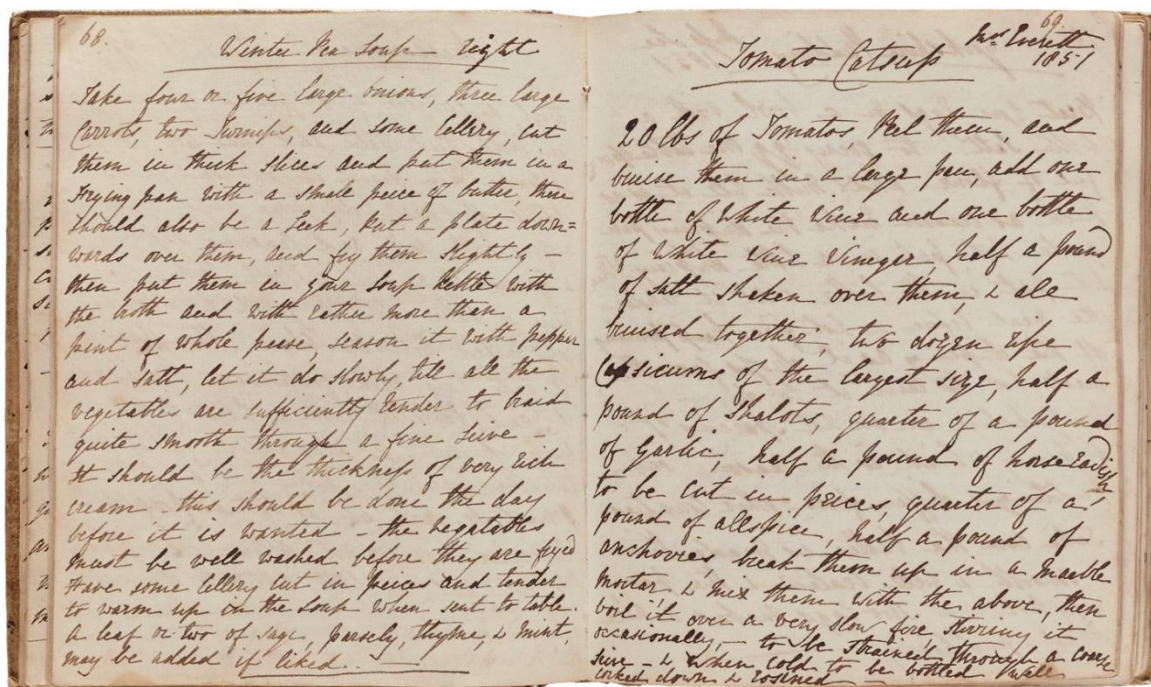 68.
Winter Pea Soup — right
Take four or five large onions, three large
Carrots, two Turnips, and some Cellery, cut
them in thick slices and put them in a
Frying pan with a small peice of butter, there
should also be a Leek, Put a plate down=
wards over them, and fry them slightly –
then put them in your soup kettle with
the broth and with rather more than a
pint of whole pease, season it with pepper
and salt, let it do slowly, till all the
vegetables are sufficiently tender to braid
quite smooth through a fine seive –
It should be the thickness of very rich
cream – this should be done the day
before it is wanted – the vegetables
must be well washed before they are fryed
Have some Cellery cut in peices and tender
to warm up in the soup when sent to table.
a leaf or two of sage, parsely, thyme, & mint,
may be added if liked.
69.
Mrs Everett
1851
Tomato Catsup
20 lbs of Tomatos, Peel them, and
bruise them in a large pan, add one
bottle of White Wine and one bottle
of White Wine Vinegar, half a pound
of salt shaken over them, & all
bruised together, two dozen ripe
Capsicums of the largest size, half a
pound of Shalots, quarter of a pound
of Garlic, half a pound of horse radish
to be cut in peices, quarter of a
pound of allspice, half a pound of
anchovies, break them up in a Marble
Mortar & Mix them with the above, then
boil it over a very slow fire, stirring it
occasionally, – to be strained through a coarse
Sieve – & when cold to be bottled well
corked down & rosined